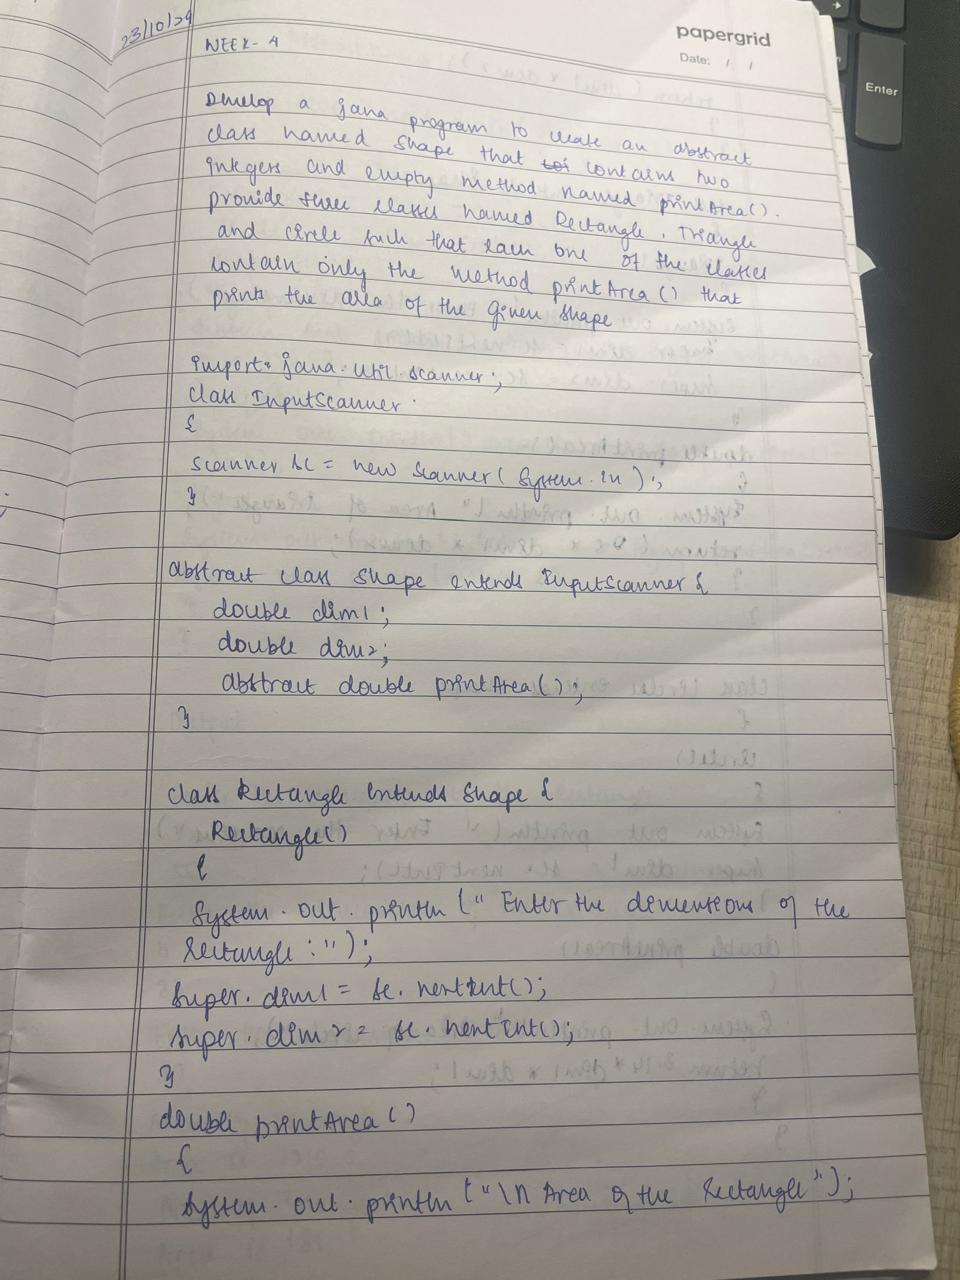 23/10/24
WEEK-4
papergrid
Date: / /
Enter
Develop a java program to create an abstract
class named Shape that contains two
integers and empty method named printArea().
provide three classes named Rectangle, Triangle
and circle such that each one of the classes
contain only the method printArea() that
prints the area of the given shape
import java.util.scanner;
class InputScanner
{
scanner sc = new scanner(System.in);
}
abstract class shape extends InputScanner {
double dim1;
double dim2;
abstract double printArea();
}
class Rectangle extends shape {
Rectangle()
{
System.out.println("Enter the dimensions of the
Rectangle:");
super.dim1 = sc.nextInt();
super.dim2 = sc.nextInt();
}
double printArea()
{
System.out.println("\n Area of the Rectangle");